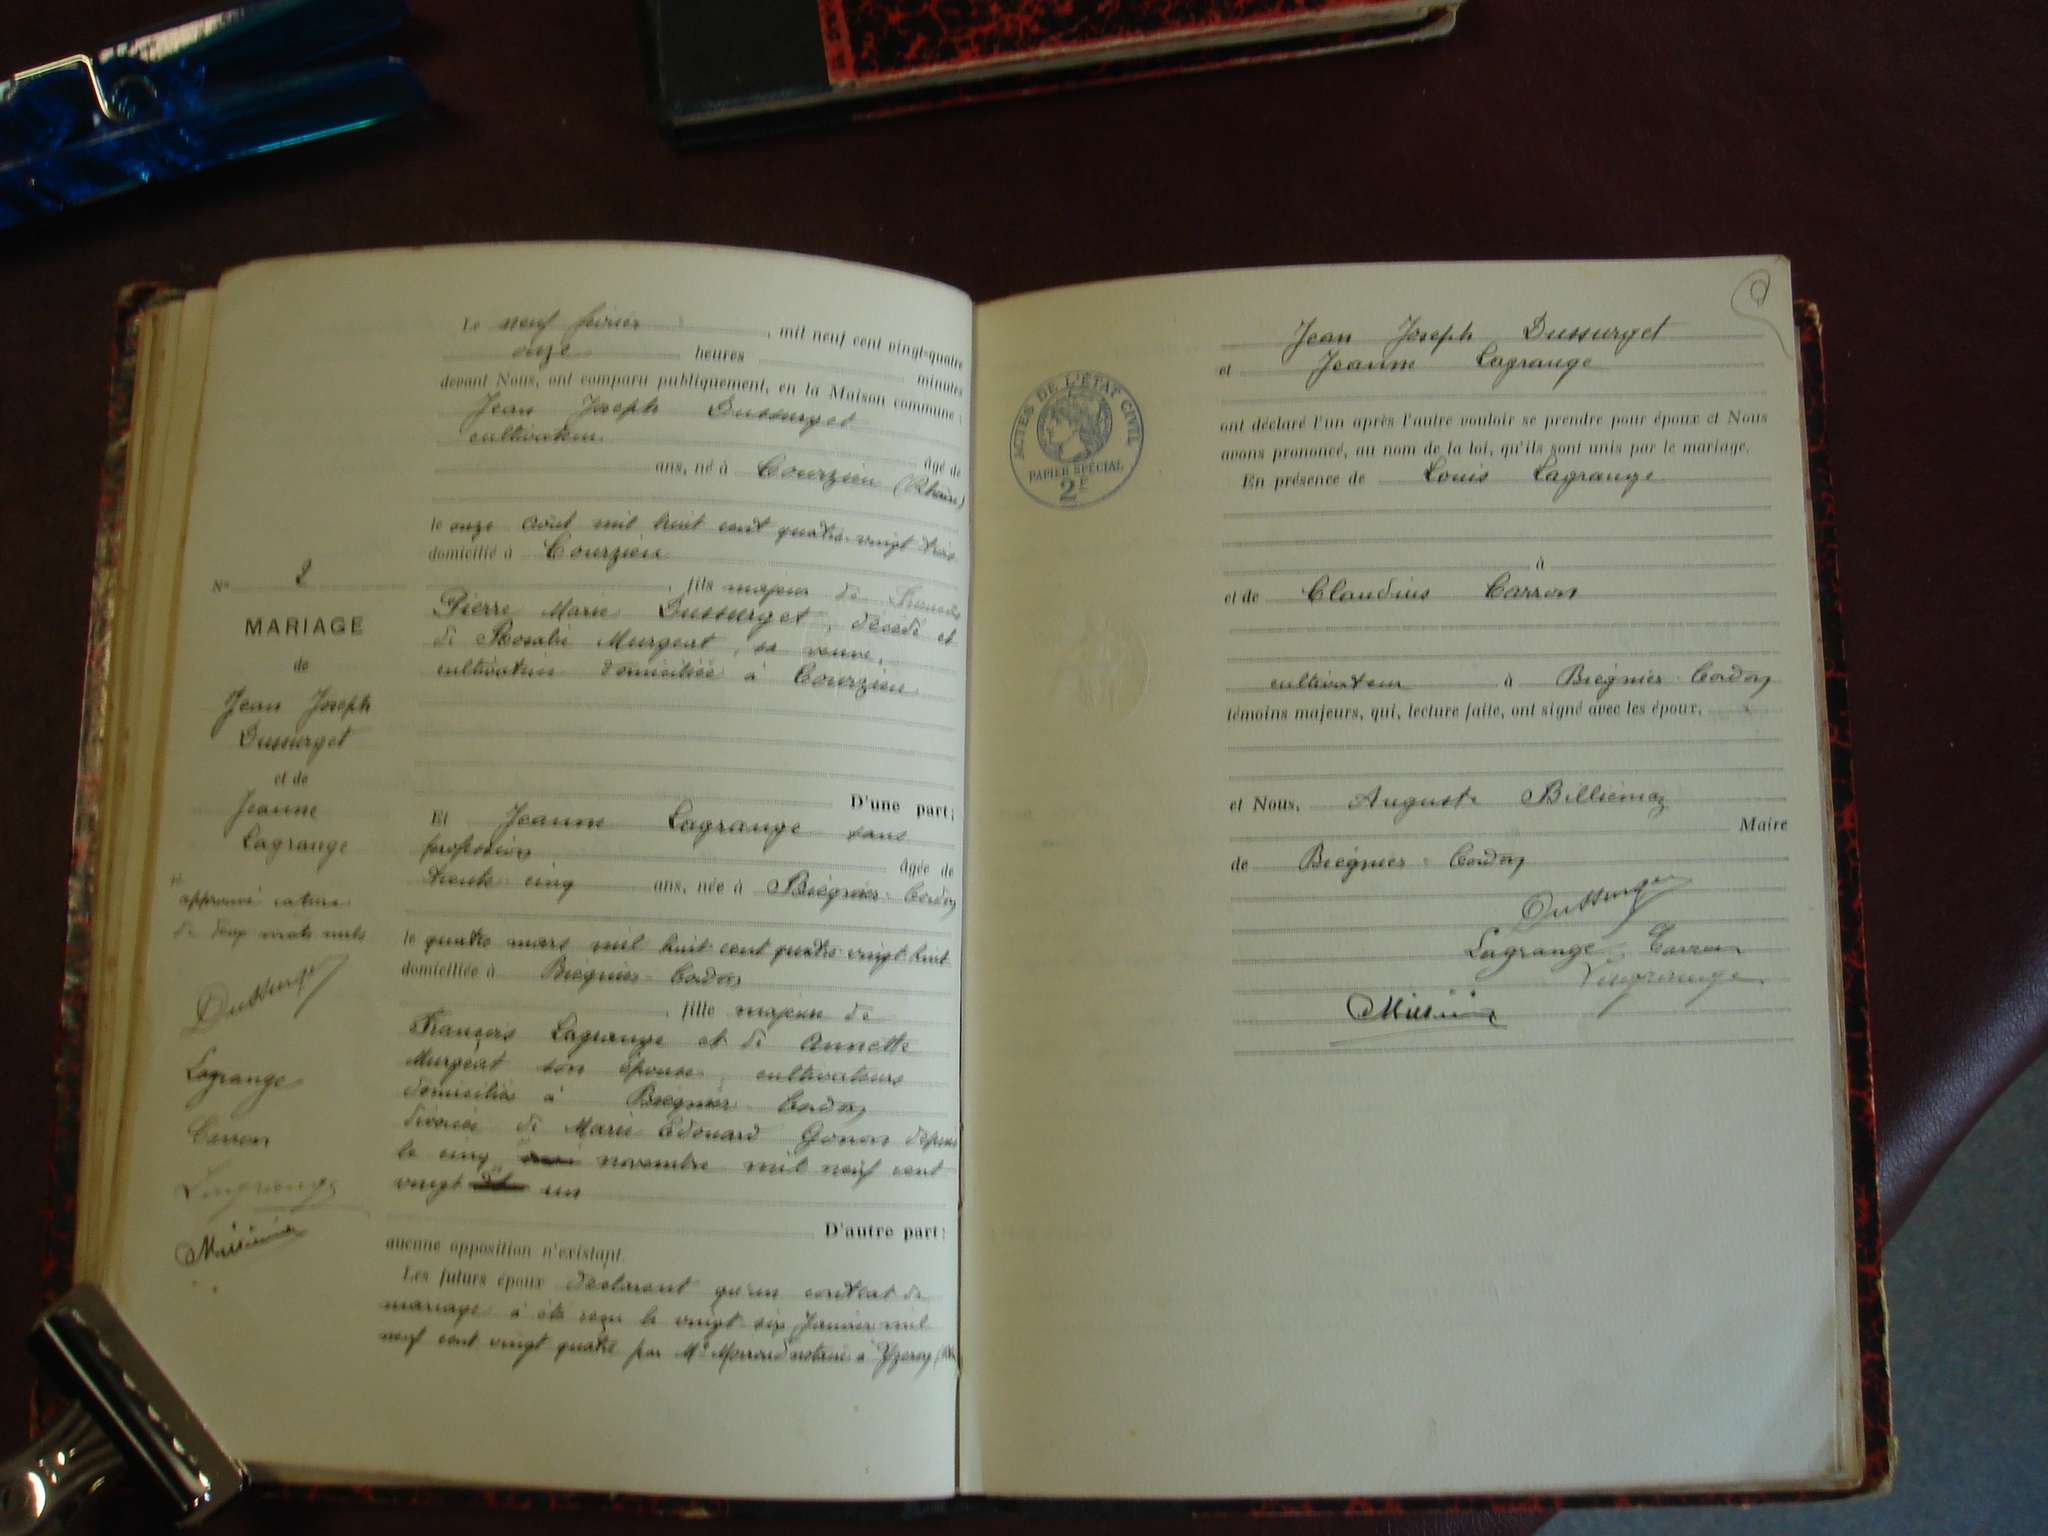 Le neuf février , mil neuf cent vingt-quatre
onze heures minutes
devant Nous, ont comparu publiquement, en la Maison commune :
Jean Joseph Dussurget
cultivateur
âgé de
ans, né à Courzieu (Rhône)
le onze août mil huit cent quatre-vingt trois
domicilié à Courzieu
, fils majeur de François
Pierre Marie Dussurget, décédé et
de Rosalie Murgeat, sa veuve,
cultivatrice domiciliée à Courzieu
D'une part;
Et Jeanne Lagrange sans
profession
âgée de
trente cinq ans, née à Brégnier-Cordon
le quatre mars mil huit cent quatre vingt huit
domiciliée à Brégnier-Cordon
, fille majeure de
François Lagrange et de Annette
Murgeat son épouse, cultivateurs
domiciliés à Brégnier Cordon
divorcée de Marie Edouard Gonon depuis
le cinq novembre mil neuf cent
vingt un
D'autre part:
aucune opposition n'existant.
Les futurs époux déclarent qu'un contrat de
mariage a été reçu le vingt six Janvier mil
neuf cent vingt quatre par Me notaire à Yzeron
N° 2
MARIAGE
de
Jean Joseph
Dussurget
et de
Jeanne
Lagrange
approuvé rature
de deux mots nuls
Dussurget
Lagrange
Carron
Lagrange
ACTES DE L'ÉTAT CIVIL
PAPIER SPÉCIAL
2F
Jean Joseph Dussurget
et Jeanne Lagrange
ont déclaré l'un après l'autre vouloir se prendre pour époux et Nous
avons prononcé, au nom de la loi, qu'ils sont unis par le mariage.
En présence de Louis Lagrange
à
et de Claudius Carron
cultivateur à Brégnier-Cordon
témoins majeurs, qui, lecture faite, ont signé avec les époux,
et Nous, Auguste Billiemaz
Maire
de Brégnier-Cordon
Dussurget
Lagrange Carron
Lagrange